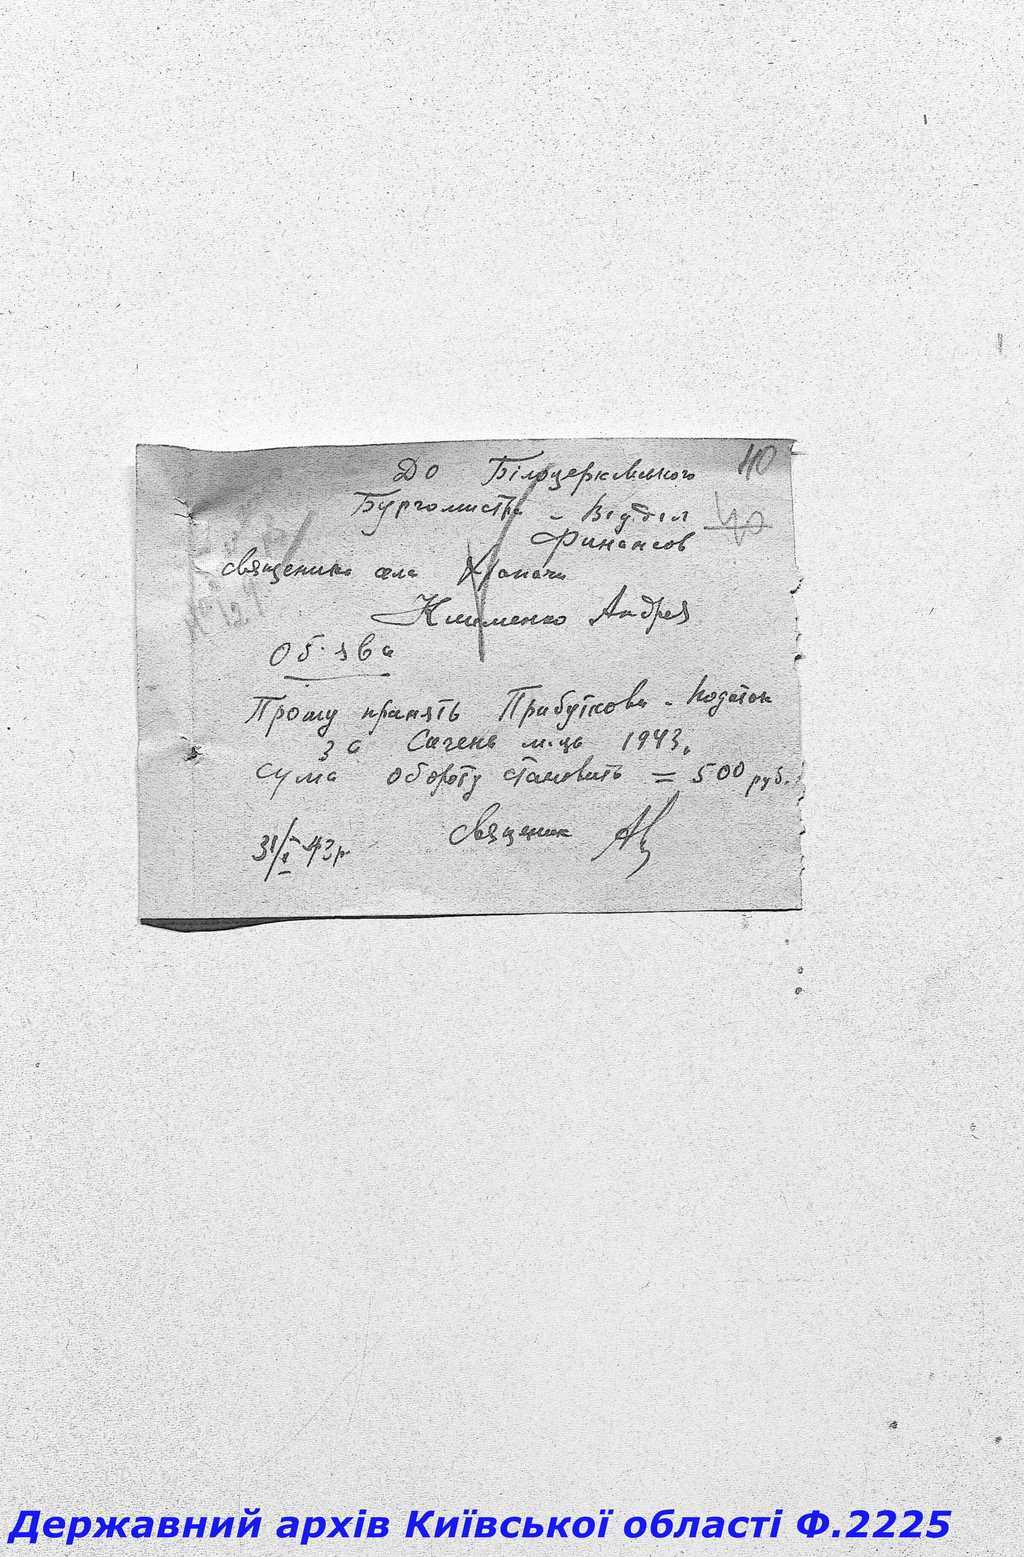 40
До Білоцерковського
Бургомистра - Відділ
40
Финансов
Священика села Храпачи
Клименко Андрея
Об'ява
Прошу принять Прибуткови - податок
за Сачень м-ць 1943.
сума обороту становить = 500 руб.
31/I-43р Священик
Державний архів Київської області Ф.2225